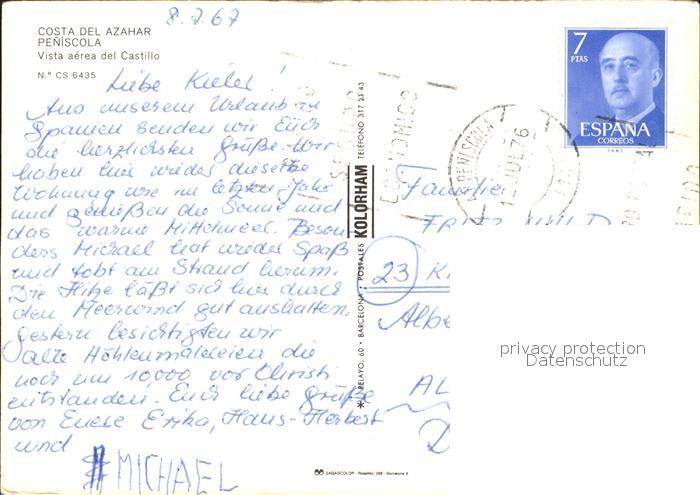 8.7.67
COSTA DEL AZAHAR
PEÑISCOLA
Vista aérea del Castillo
N.º CS 6435
Liebe Kieler!
Aus unserem Urlaub in
Spanien senden wir Euch
die herzlichsten Grüße. Wir
haben hier wieder dieselbe
Wohnung wie im letzten Jahr
und genießen die Sonne und
das warme Mittelmeer. Beson
ders Michael hat wieder Spaß
und tobt am Strand herum.
Die Hitze läßt sich hier durch
den Meerwind gut aushalten.
Gestern besichtigten wir
alte Höhlenmalereien die
noch um 10,000 vor Christi
entstanden. Euch liebe Grüße
von Eurer Erika, Hans-Herbert
und
MICHAEL
RELAYO, 60 • BARCELONA • POSTALES KOLORHAM TELÉFONO 317 23 43
7
PTAS
ESPAÑA
CORREOS
PEÑISCOLA
12 JUL 76
Familie
23 K
Albe
AL
D
privacy protection
Datenschutz
SABASCOLOR